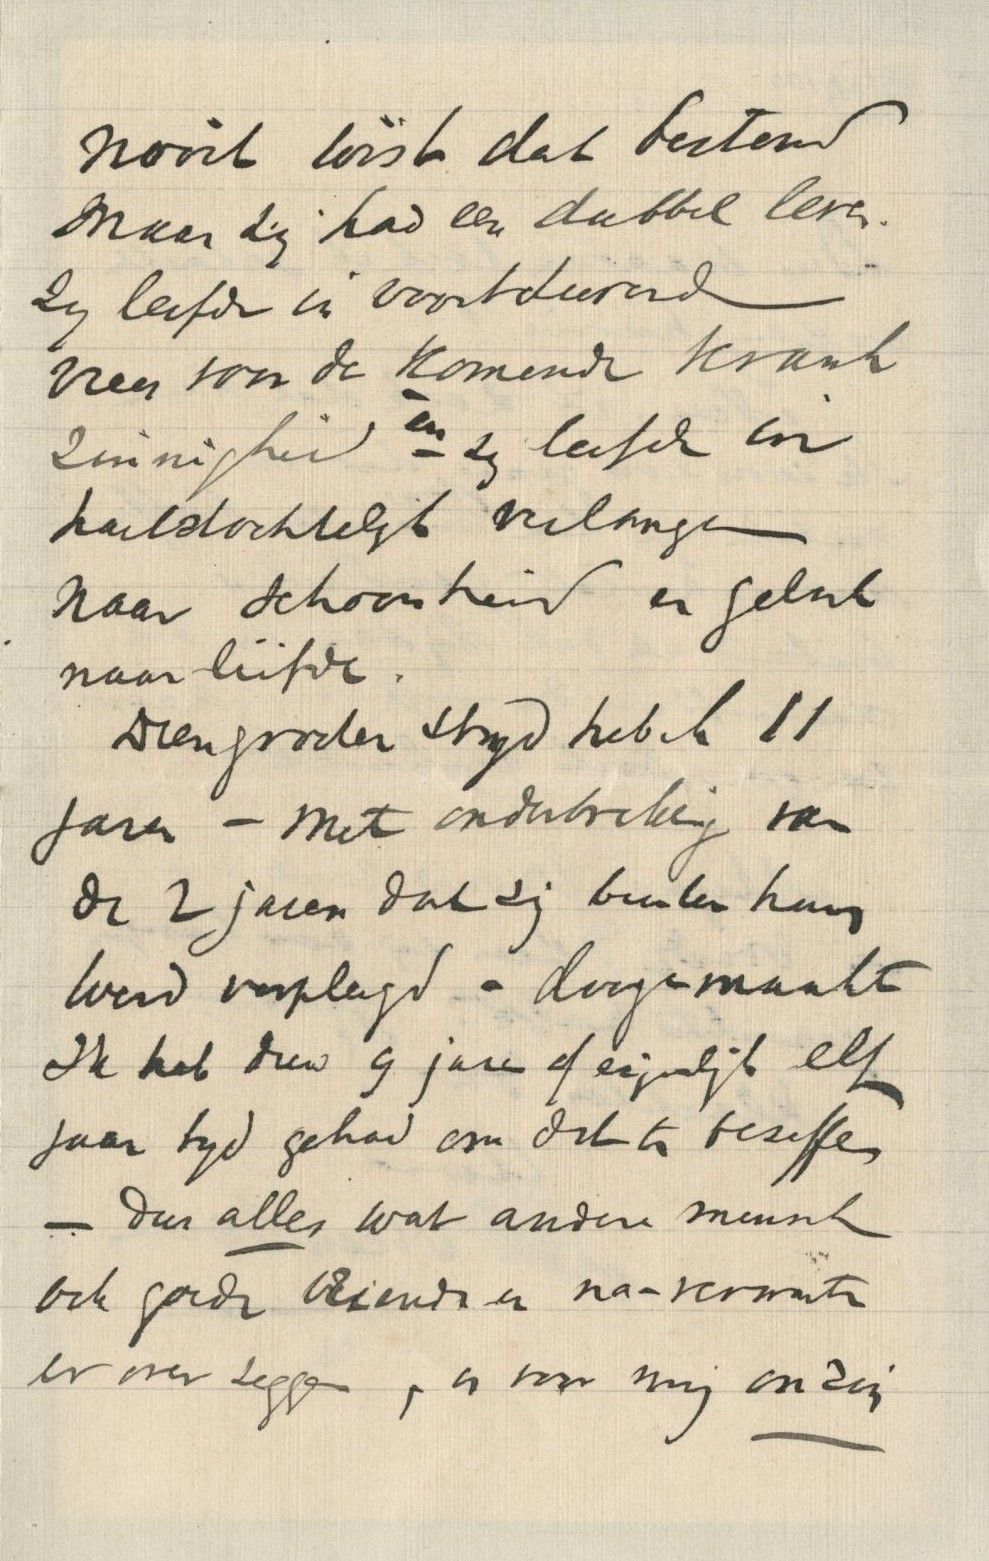 nooit wist dat bestond
Maar zij had een dubbel leven.
Zij leefde in voortdurend
vrees voor de komende krank
zinnigheid èn zij leefde in
hartstochtelijk verlangen
naar schoonheid en geluk
naar liefde.
Dien grooten strijd heb ik 11
jaren – met onderbreking van
de 2 jaren dat zij buiten huis
werd verpleegd – doorgemaakt
Ik heb dien 9 jaren of eigenlijk elf
jaar tijd gehad om dat te beseffen
– dus alles wat andere mensch
ook goede vrienden en na-verwante
er over zeggen, is voor mij onzin